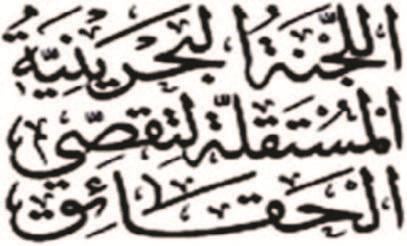 اللجنة البحرينية
المستقلة لتقصي
الحقائق